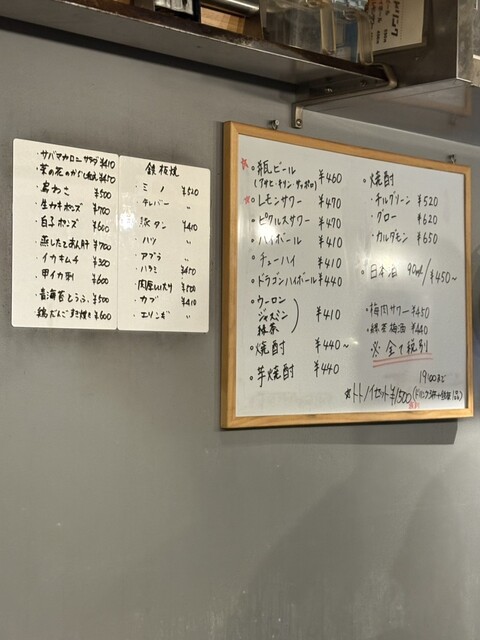 ・サバマカロニサラダ ¥410
・菜の花のからし和え ¥450
・鳥わさ ¥500
・生カキポンズ ¥700
・白子ポンズ ¥600
・蒸したてあん肝 ¥700
・イカキムチ ¥300
・甲イカ刺 ¥600
・青海苔とうふ ¥500
鉄板焼
・ミノ ¥520
・レバー 〃
・豚タン ¥410
・ハツ 〃
・アブラ 〃
・ハラミ
・カブ ¥410
・エリンギ 〃
・瓶ビール ¥460
(アサヒ・キリン・サッポロ)
・レモンサワー ¥470
・ピクルスサワー ¥470
・ハイボール ¥410
・チューハイ ¥410
・ドラゴンハイボール ¥440
・ウーロン
ジャスミン ¥410
緑茶
・焼酎 ¥440~
・芋焼酎 ¥440
・焼酎
・チルグリーン ¥520
・グロー ¥620
・カルダモン ¥650
・日本酒 90ml/¥450~
・梅肉サワー ¥450
・緑茶梅酒 ¥440
※全て税別
19:00まで
トトノイセット ¥1500